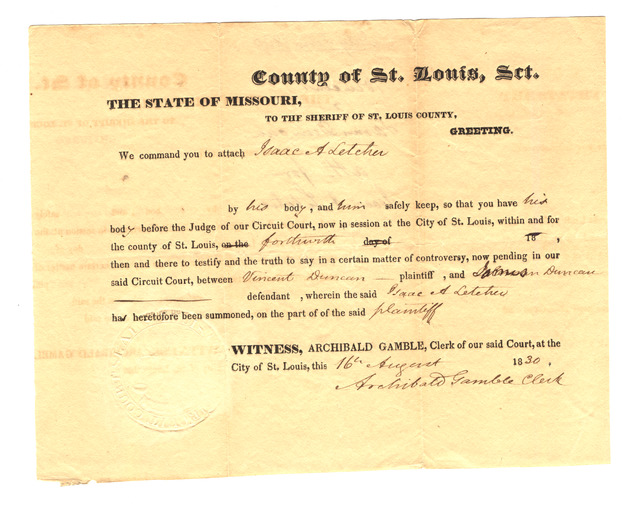 County of St. Louis, Sct.
THE STATE OF MISSOURI,
TO THE SHERIFF OF ST. LOUIS COUNTY,
GREETING.
We command you to attach Isaac A Letcher
by his body, and him safely keep, so that you have his
body before the Judge of our Circuit Court, now in session at the City of St. Louis, within and for
the county of St. Louis, on the forthwith day of 18 ,
then and there to testify and the truth to say in a certain matter of controversy, now pending in our
said Circuit Court, between Vincent Duncan — plaintiff, and Duncan
defendant , wherein the said Isaac A Letcher
has heretofore been summoned, on the part of of the said plaintiff
WITNESS, ARCHIBALD GAMBLE, Clerk of our said Court, at the
City of St. Louis, this 16th August 1830.
Archibald Gamble Clerk